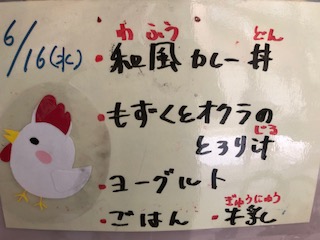 6/16(水)
わふう どん
・和風カレー丼
・もずくとオクラの
じる
とろり汁
・ヨーグルト
ぎゅうにゅう
・ごはん ・牛乳